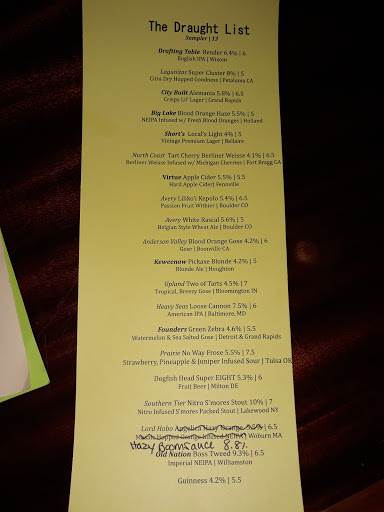 The Draught List
Sampler | 13
Drafting Table Render 6.4% | 6
English IPA | Wixom
Lagunitas Super Cluster 8% | 5
Citra Dry Hopped Goodness | Petaluma CA
City Built Alemania 5.8% | 6.5
Crispy Lil' Lager | Grand Rapids
Big Lake Blood Orange Haze 5.5% | 5
NEIPA Infused w/ Fresh Blood Oranges | Holland
Short's Local's Light 4% | 5
Vintage Premium Lager | Bellaire
North Coast Tart Cherry Berliner Weisse 4.1% | 6.5
Berliner Weisse Infused w/ Michigan Cherries | Fort Bragg CA
Virtue Apple Cider 5.5% | 5.5
Hard Apple Cider| Fennville
Avery Liliko'i Kepolo 5.4% | 6.5
Passion Fruit Witbier | Boulder CO
Avery White Rascal 5.6% | 5
Belgian Style Wheat Ale | Boulder CO
Anderson Valley Blood Orange Gose 4.2% | 6
Gose | Boonville CA
Keweenaw Pickaxe Blonde 4.2% | 5
Blonde Ale | Houghton
Upland Two of Tarts 4.5% | 7
Tropical, Breezy Gose | Bloomington IN
Heavy Seas Loose Cannon 7.5% | 6
American IPA | Baltimore, MD
Founders Green Zebra 4.6% | 5.5
Watermelon & Sea Salted Gose | Detroit & Grand Rapids
Prairie No Way Frose 5.5% | 7.5
Strawberry, Pineapple & Juniper Infused Sour | Tulsa OK
Dogfish Head Super EIGHT 5.3% | 6
Fruit Beer | Milton DE
Southern Tier Nitro S'mores Stout 10% | 7
Nitro Infused S'mores Packed Stout | Lakewood NY
Lord Hobo Angelica Hazy Orange 5.5% | 6.5
Hopped Orange Infused | Woburn MA
Hazy Boomsauce 8.8%
Old Nation Boss Tweed 9.3% | 6.5
Imperial NEIPA | Williamston
Guinness 4.2% | 5.5